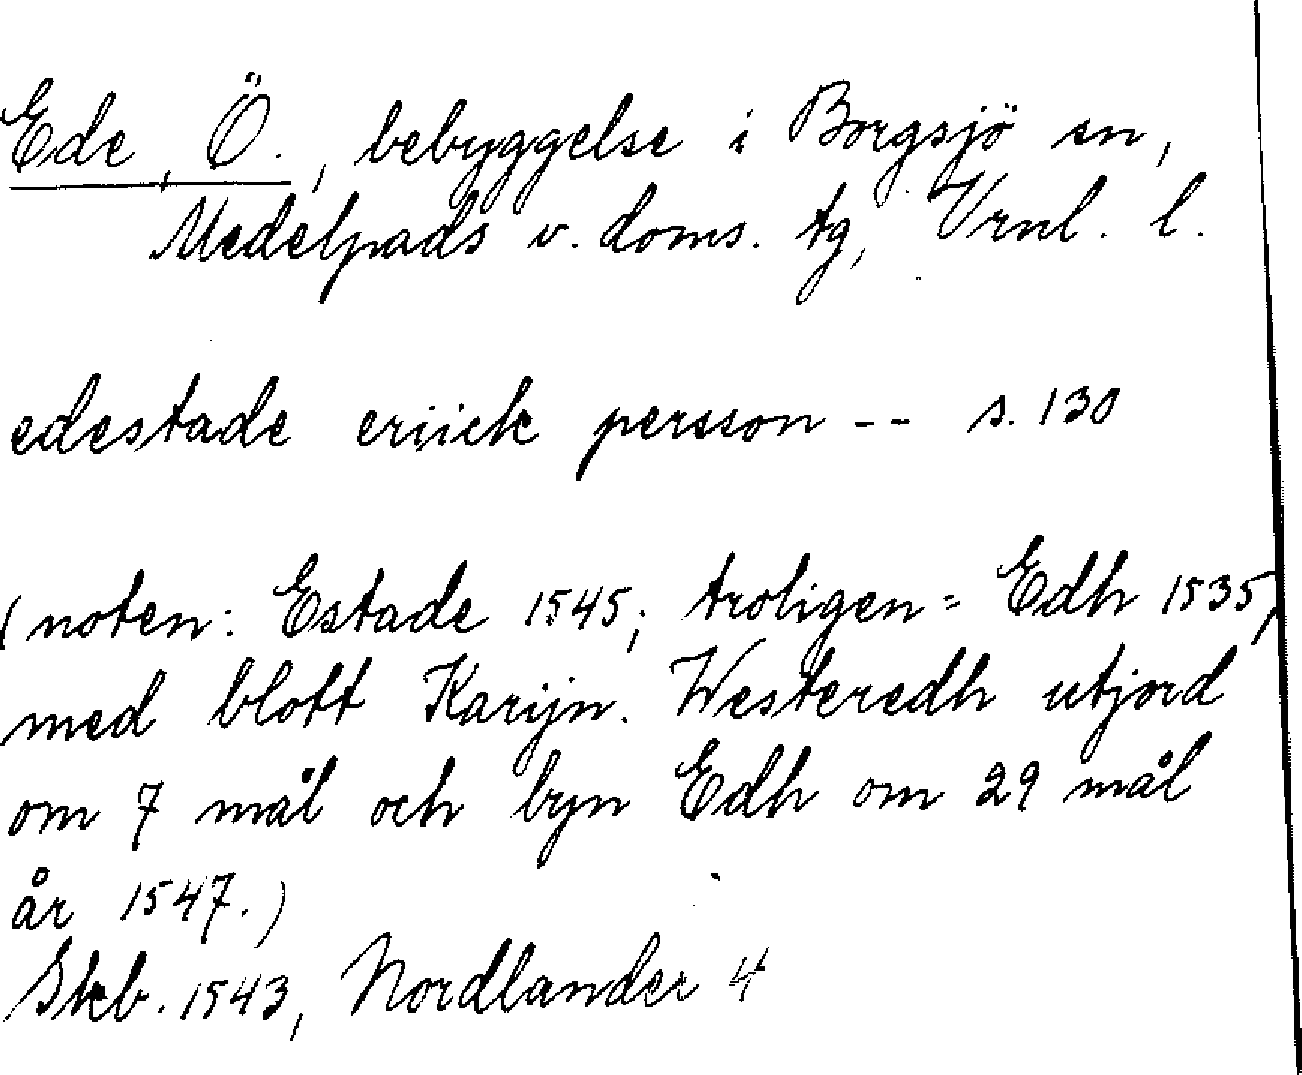 Ede, Ö., bebyggelse i Borgsjö sn,
Medelpads v. doms. tg, Vrnl. l.
edestade eriick persson -- s. 130
(noten: Estade 1545; troligen = Edh 1535,
med blott Karijn. Westeredh utjord
om 7 mål och byn Edh om 29 mål
år 1547.)
Skb. 1543, Nordlander 4